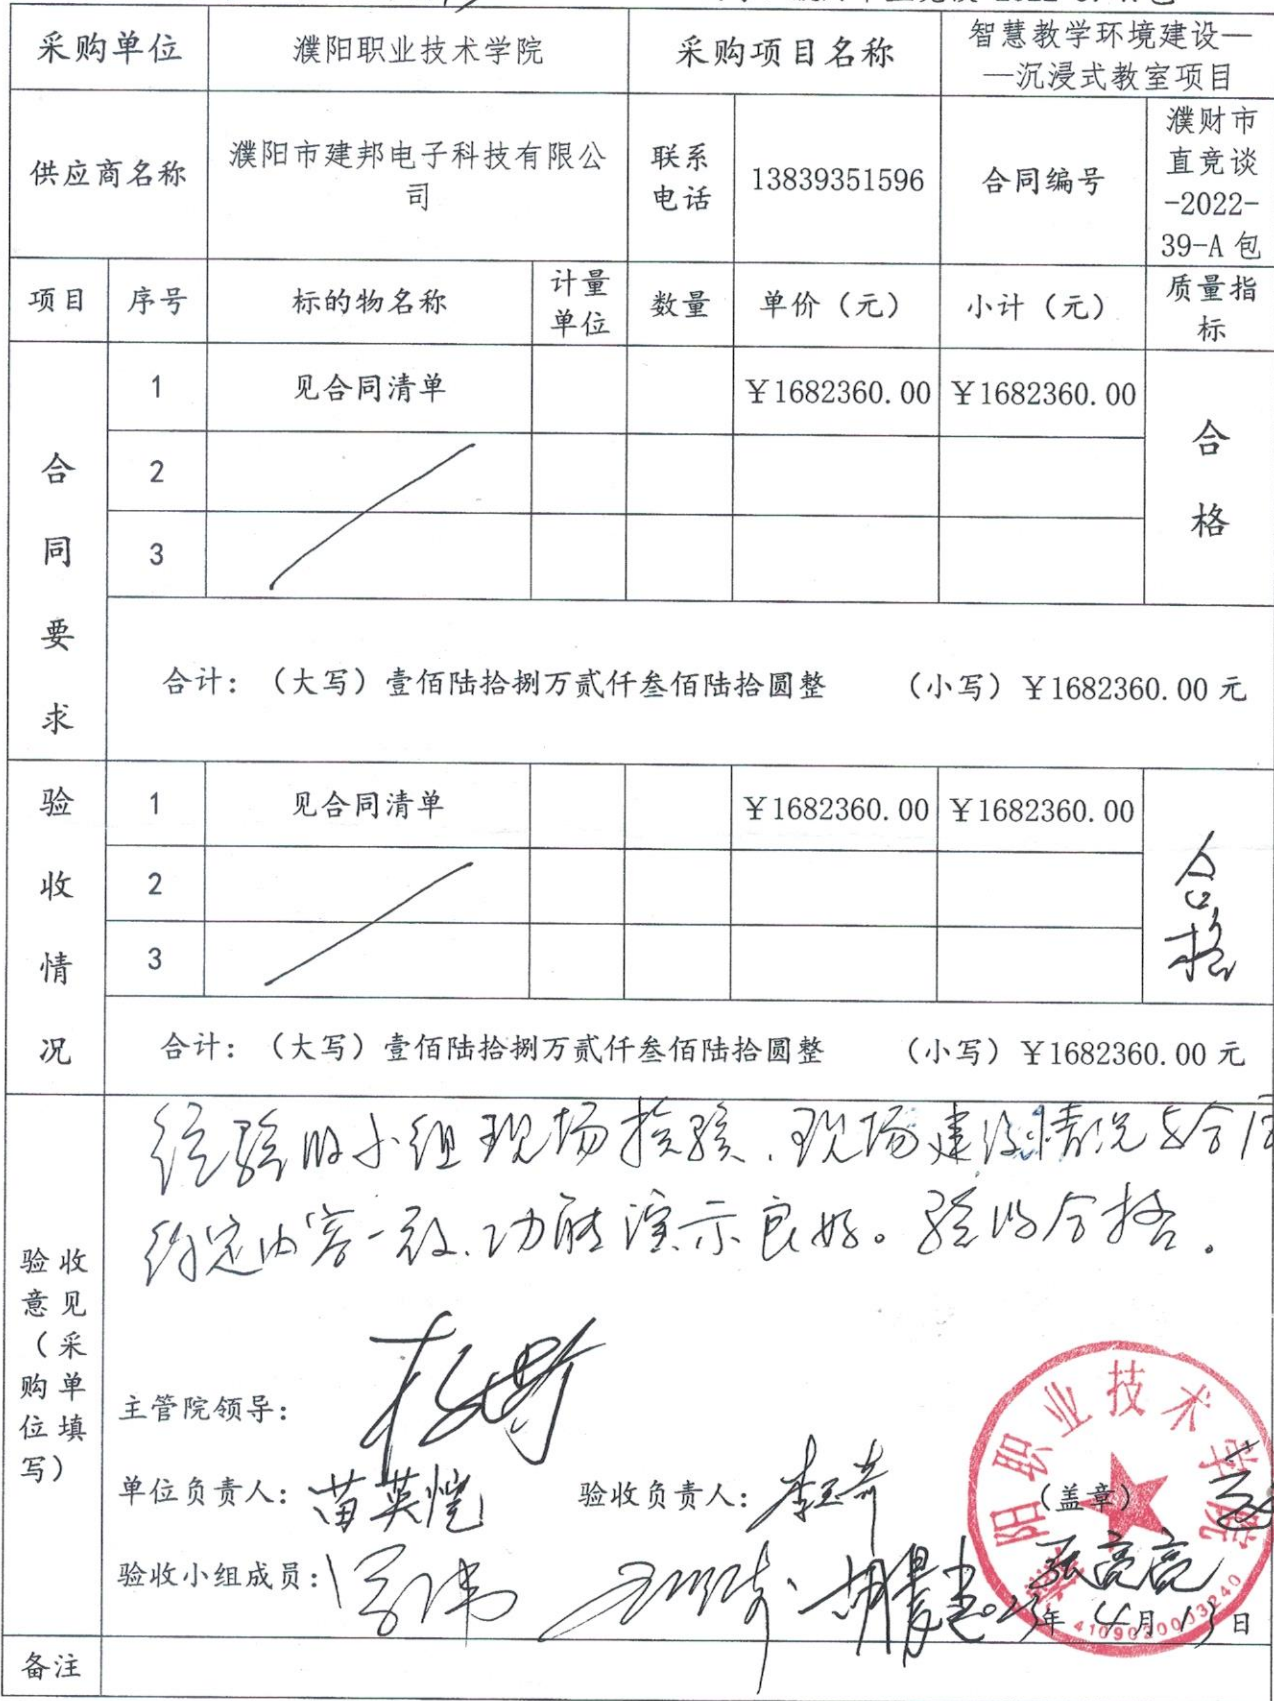 采购单位 濮阳职业技术学院 采购项目名称 智慧教学环境建设—
—沉浸式教室项目
供应商名称 濮阳市建邦电子科技有限公
司
联系
电话
13839351596 合同编号
濮财市
直竞谈
-2022-
39-A 包
项目 序号 标的物名称 计量
单位
数量 单价（元） 小计（元） 质量指
标
合同要求
1 见合同清单 ￥1682360.00 ￥1682360.00
2
3
合格
合计：（大写）壹佰陆拾捌万贰仟叁佰陆拾圆整 （小写）￥1682360.00 元
验收情况
1 见合同清单 ￥1682360.00 ￥1682360.00
2
3
合格
合计：（大写）壹佰陆拾捌万贰仟叁佰陆拾圆整 （小写）￥1682360.00 元
验收
意见
（采
购单
位填
写）
经验收小组现场检验、现场建设情况与合同
约定内容一致、功能演示良好。验收合格。
主管院领导：
单位负责人：苗英恺 验收负责人： （盖章）
验收小组成员： 张亮亮
2023年 4月 13日
濮阳职业技术学院
4109020003240
备注